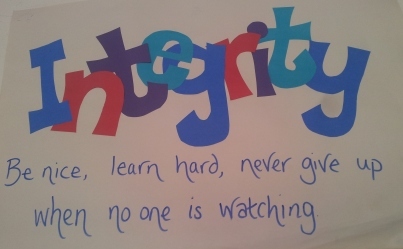 Integrity
Be nice, learn hard, never give up
when no one is watching.